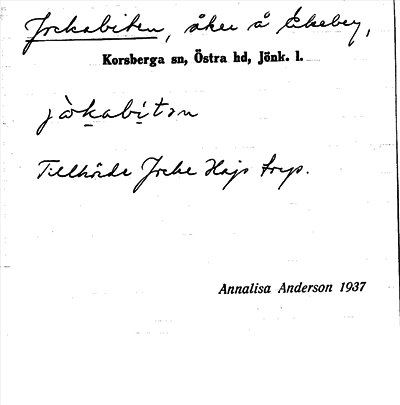 Jockabiten, åker å Ekeby,
Korsberga sn, Östra hd, Jönk. l.
Tillhörde Jocke Hajs torp.
Annalisa Anderson 1937